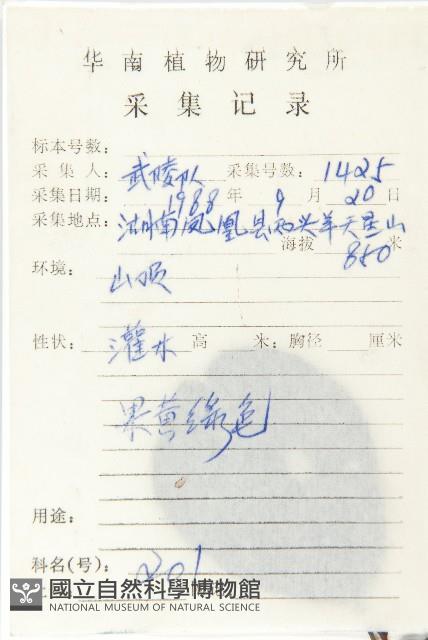 华南植物研究所
采集记录
标本号数：
采集人：武陵队 采集号数：1425
采集日期：1988年9月20日
采集地点：湖南凤凰县两头羊天星山
海拔 850 米
环境：山顶
性状：灌木 高 米；胸径 厘米
果黄绿色
用途：
科名(号)：201
國立自然科學博物館
NATIONAL MUSEUM OF NATURAL SCIENCE